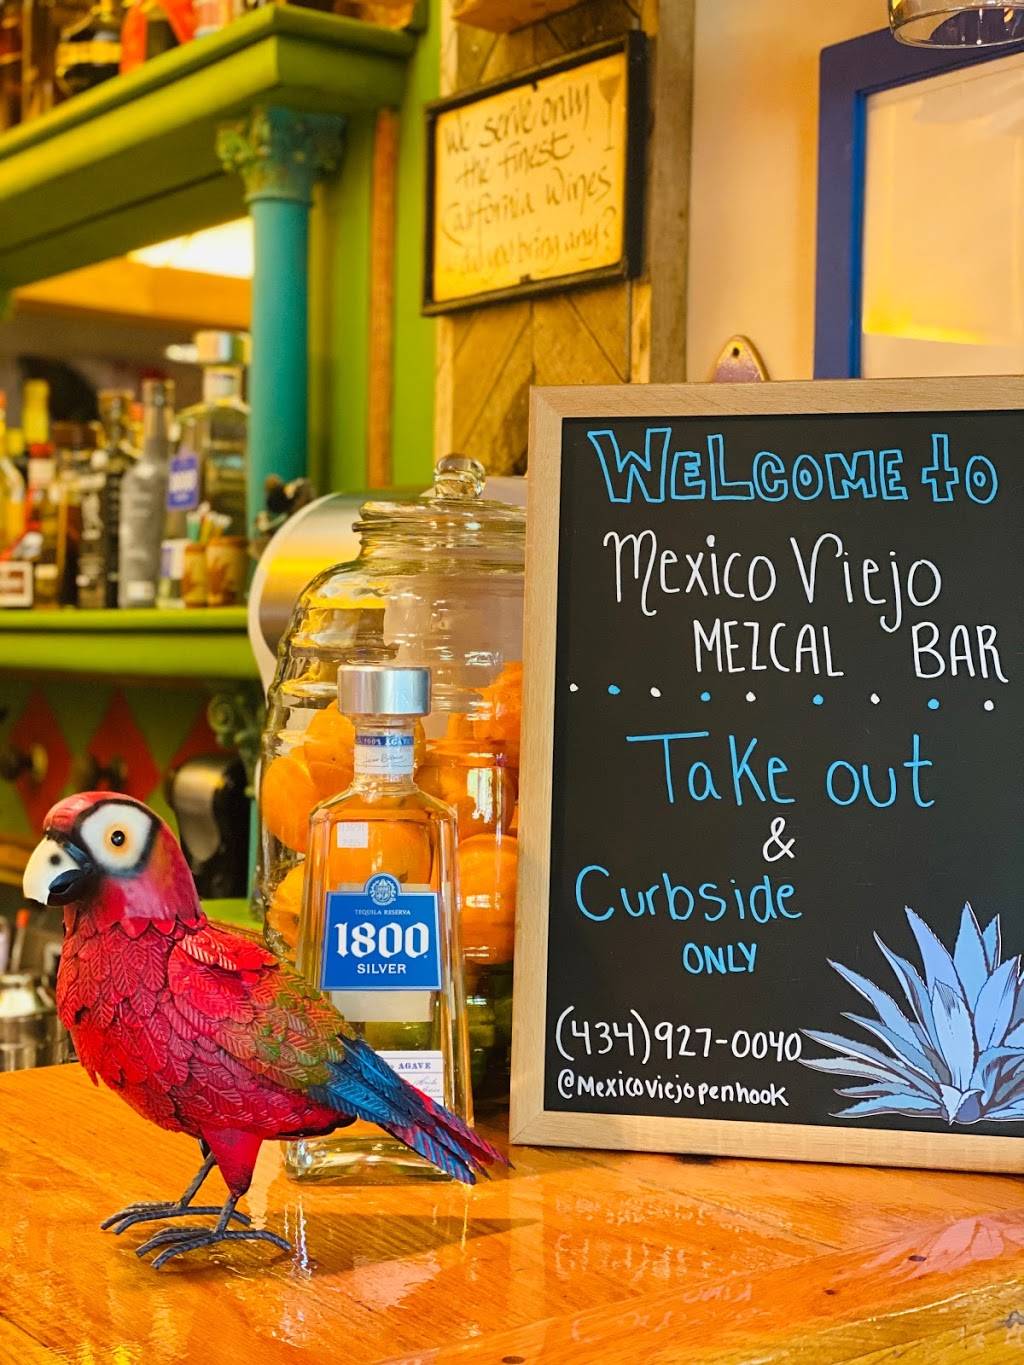 We serve only
the finest
California Wines
did you bring any?
WELCOME to
Mexico Viejo
MEZCAL BAR
Take out
&
Curbside
ONLY
(434)927-0040
@Mexicoviejopenhook
100% AGAVE
TEQUILA RESERVA
1800
SILVER
AGAVE
1800